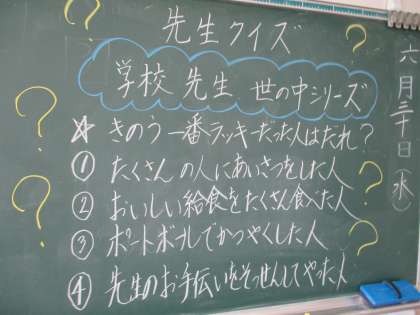 先生クイズ
学校 先生 世の中シリーズ
☆ きのう一番ラッキーだった人はだれ?
① たくさんの人にあいさつをした人
② おいしい給食をたくさん食べた人
③ ポートボールでかつやくした人
④ 先生のお手伝いをそっせんしてやった人
六月三十日(水)
?
?
?
?
?
?